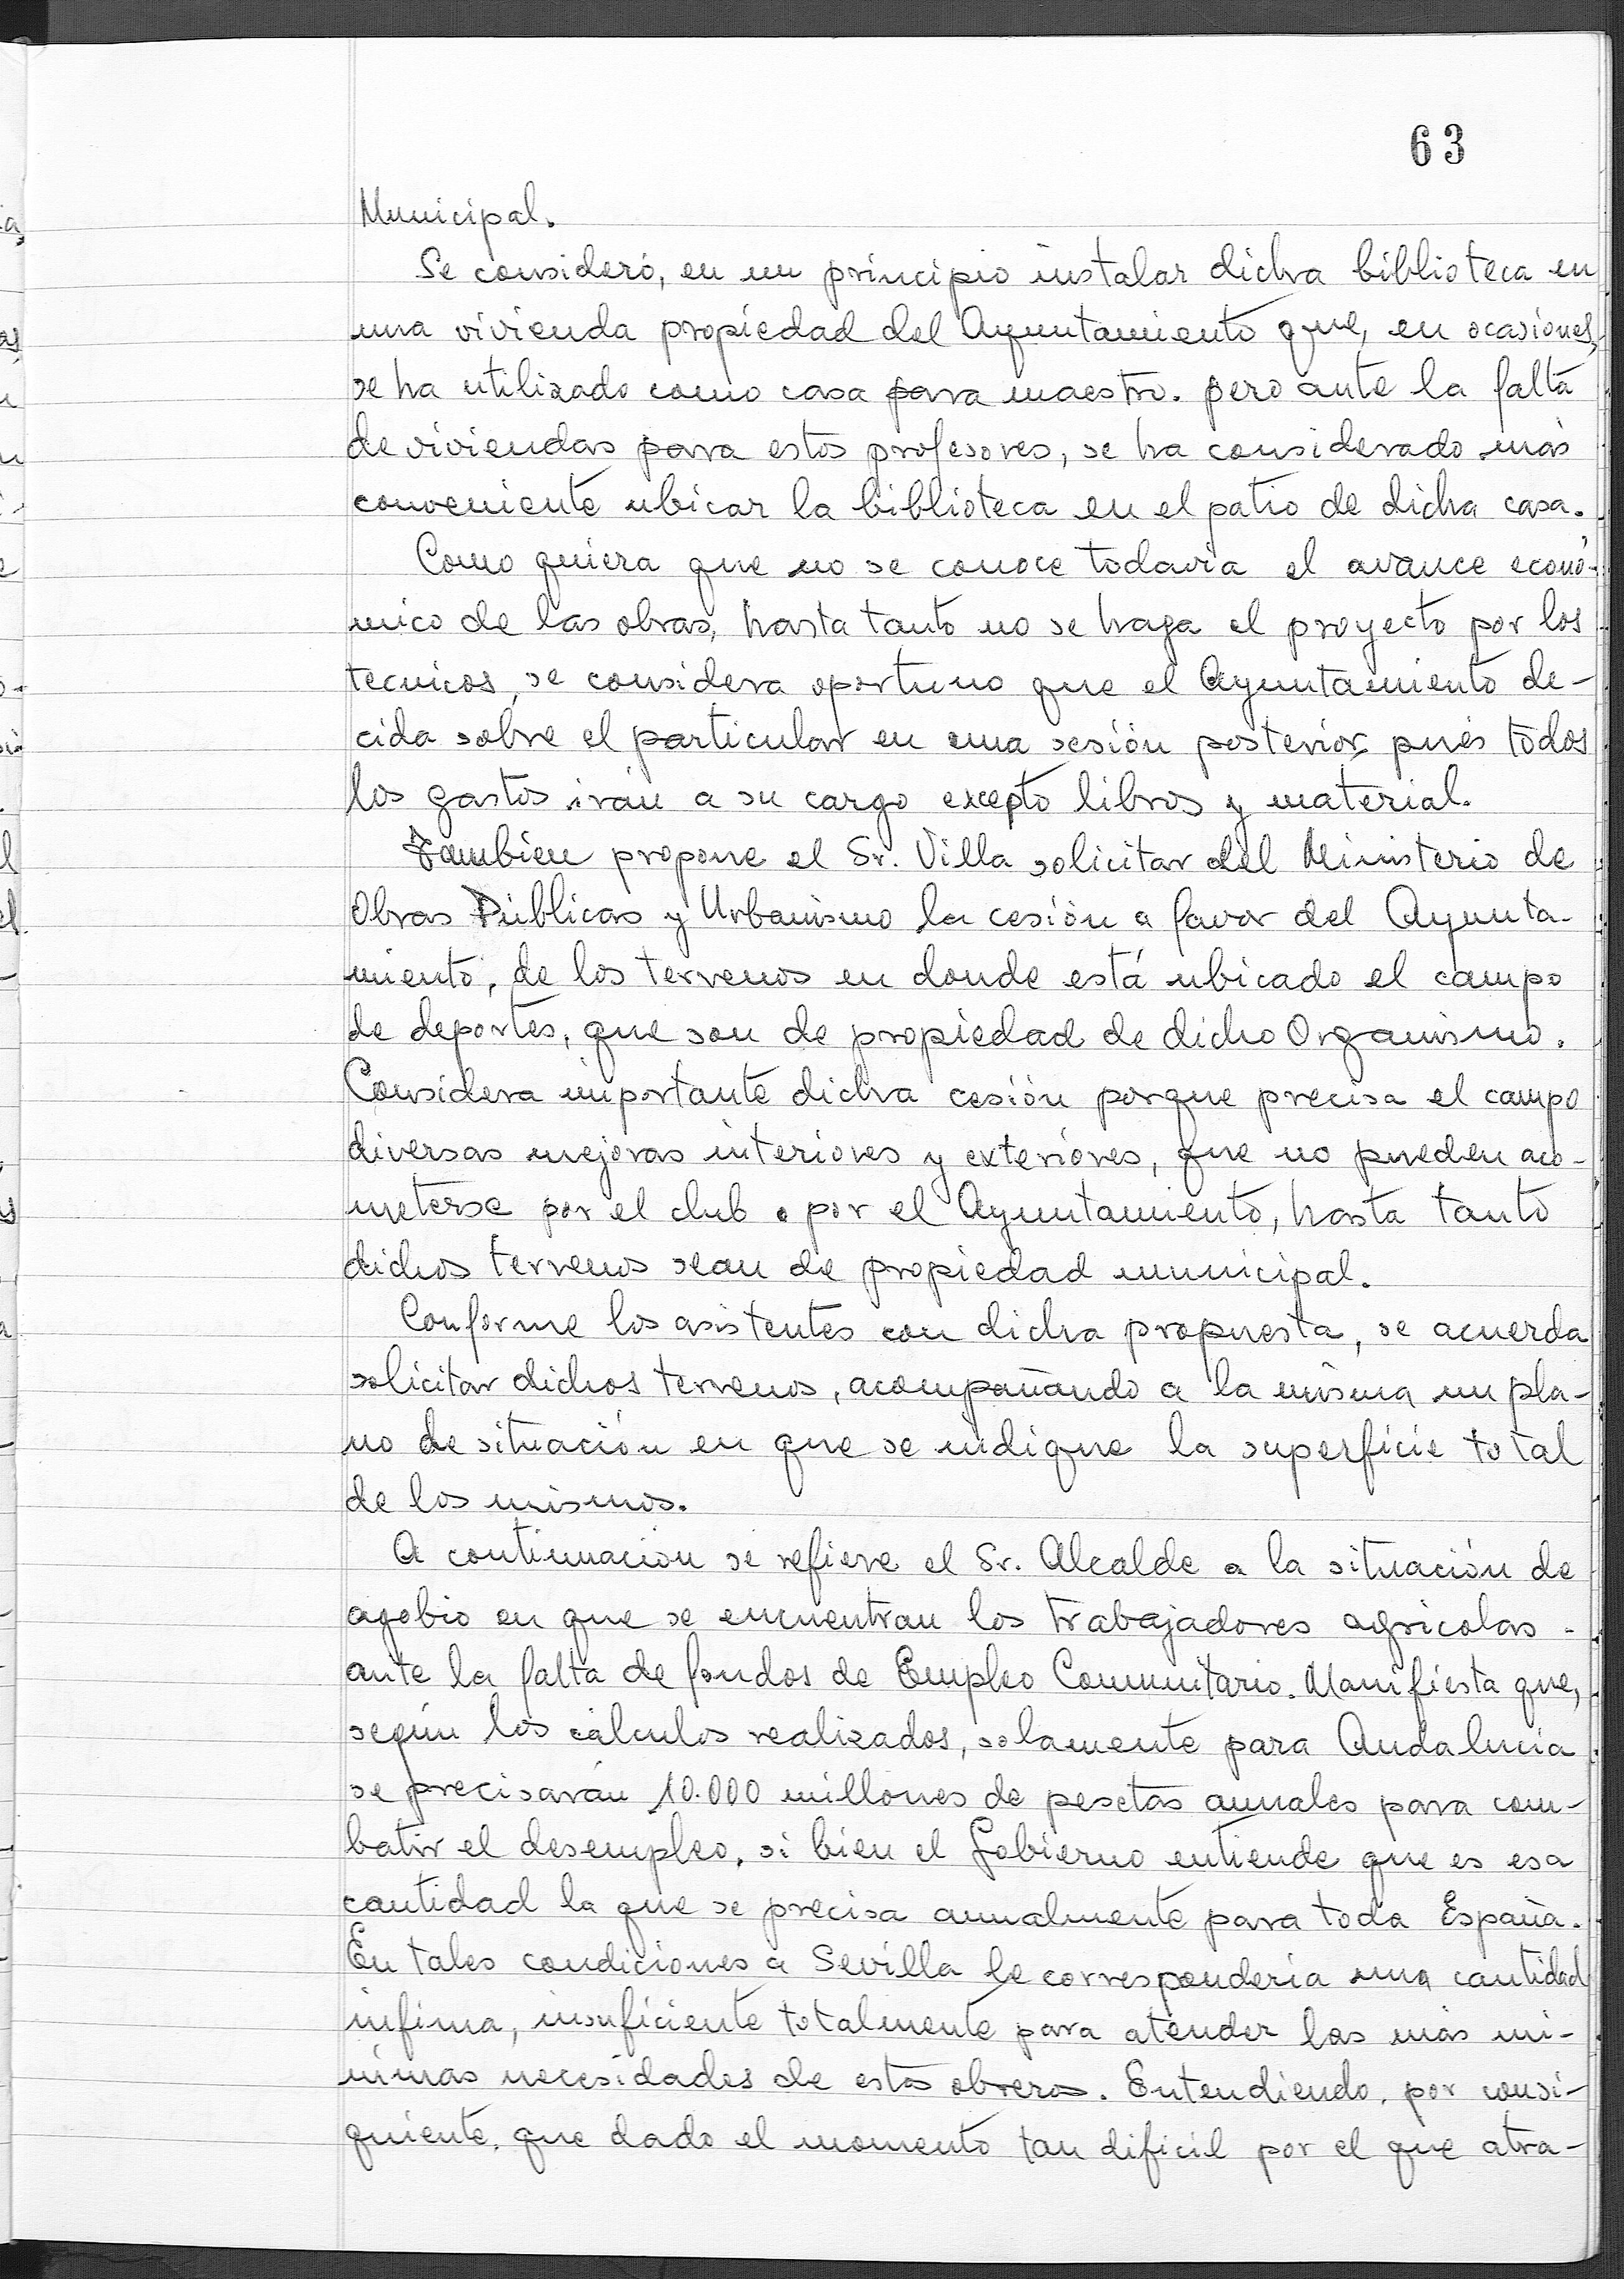 63
Municipal.
Se consideró, en un principio instalar dicha biblioteca en
una vivienda propiedad del Ayuntamiento que, en ocasiones,
se ha utilizado como casa para maestro. pero ante la falta
de viviendas para estos profesores, se ha considerado más
conveniente ubicar la biblioteca en el patio de dicha casa.
Como quiera que no se conoce todavía el avance econó-
mico de las obras, hasta tanto no se haga el proyecto por los
tecnicos, se considera oportuno que el Ayuntamiento de-
cida sobre el particular en una sesión posterior, pués todos
los gastos irán a su cargo excepto libros y material.
Tambien propone el Sr. Villa solicitar del Ministerio de
Obras Públicas y Urbanismo la cesión a favor del Ayunta-
miento, de los terrenos en donde está ubicado el campo
de deportes, que son de propiedad de dicho Organismo.
Considera importante dicha cesión porque precisa el campo
diversas mejoras interiores y exteriores, que no pueden aco-
meterse por el club o por el Ayuntamiento, hasta tanto
dichos terrenos sean de propiedad municipal.
Conforme los asistentes con dicha propuesta, se acuerda
solicitar dichos terrenos, acompañando a la misma un pla-
no de situación en que se indique la superficie total
de los mismos.
A continuación se refiere el Sr. Alcalde a la situación de
agobio en que se encuentran los trabajadores agricolas -
ante la falta de fondos de Empleo Comunitario. Manifiesta que,
según los cálculos realizados, solamente para Andalucia
se precisarán 10.000 millones de pesetas anuales para com-
batir el desempleo, si bien el Gobierno entiende que es esa
cantidad la que se precisa anualmente para toda España.
En tales condiciones a Sevilla le correspondería una cantidad
infima, insuficiente totalmente para atender las más mí-
nimas necesidades de estos obreros. Entendiendo, por consi-
guiente, que dado el momento tan dificil por el que atra-